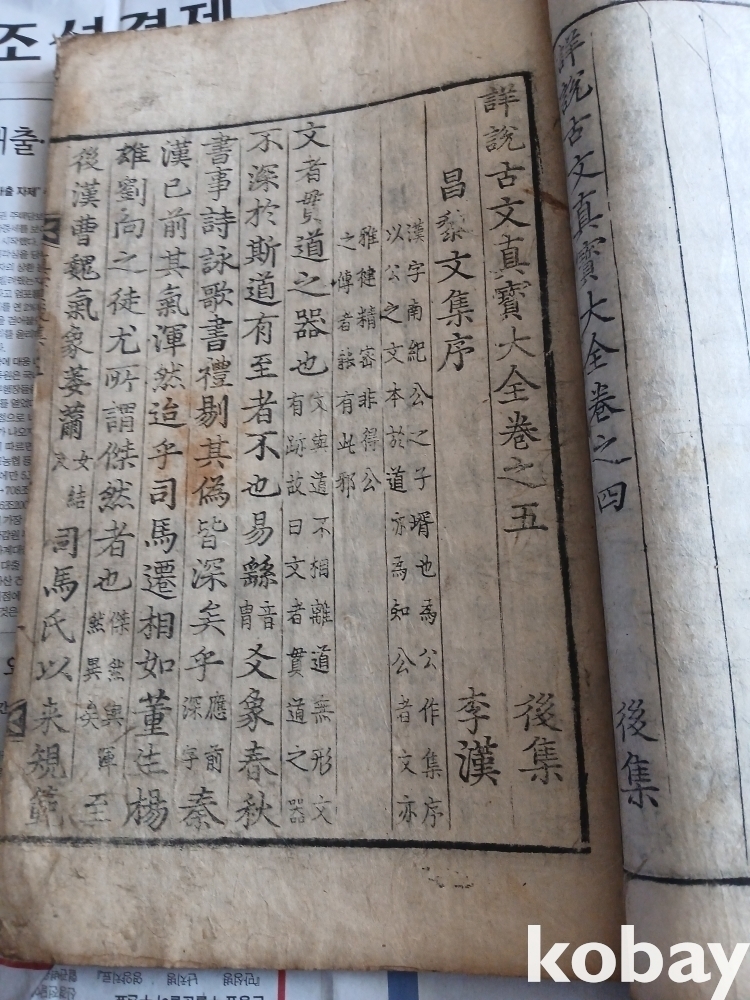 조선경제
詳說古文真寶大全卷之四 後集
詳說古文真寶大全卷之五 後集
昌黎文集序 李漢
漢字南紀公之子壻也爲公作集序
以公之文本於道亦爲知公者文亦
雅健精密非得公
之傳者詎有此邪
文者貫道之器也 文與道不相離道無形文 有跡故曰文者貫道之器
不深於斯道有至者不也易繇 音胄 爻象春秋
書事詩詠歌書禮剔其偽皆深矣乎 應前深字 秦
漢已前其氣渾然迨乎司馬遷相如董生楊
雄劉向之徒尤所謂傑然者也 傑然與渾然異矣 至
後漢曹魏氣象萎薾 女結反 司馬氏以来規範
kobay